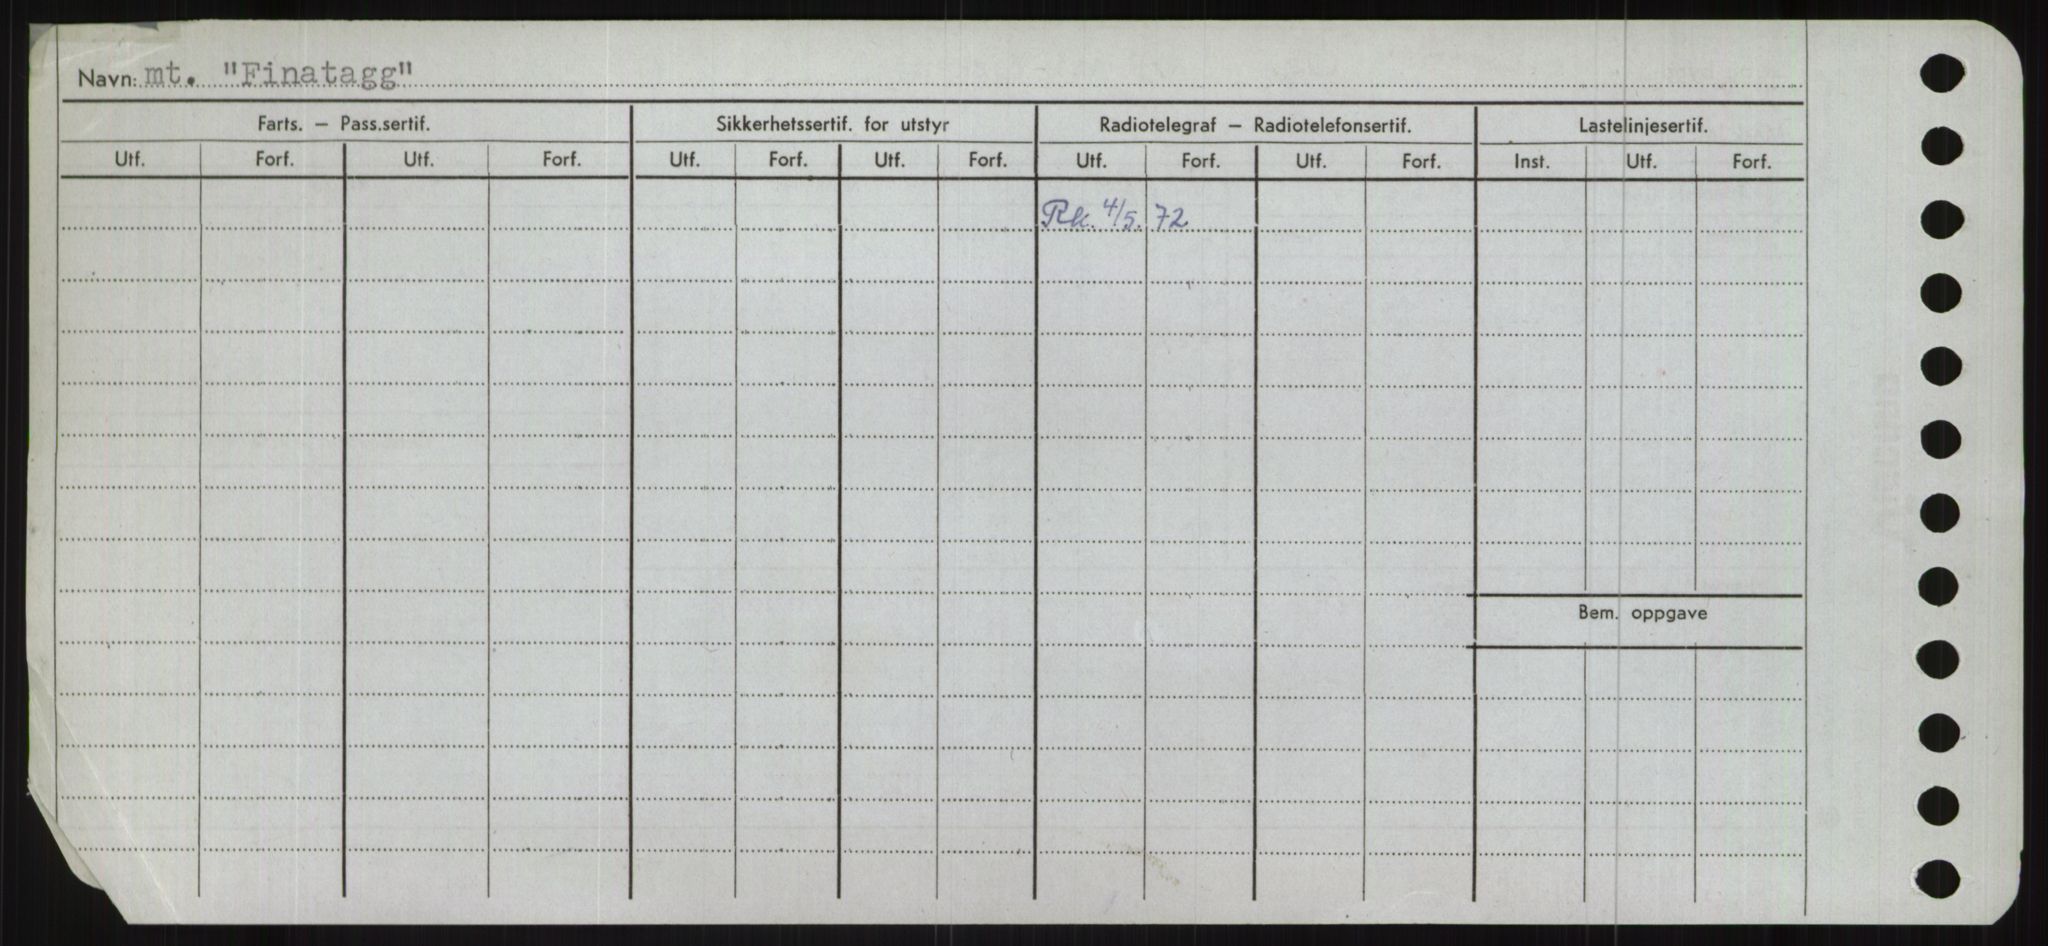 Navn: mt. "Finatagg"
Farts. — Pass.sertif. Sikkerhetssertif. for utstyr Radiotelegraf — Radiotelefonsertif. Lastelinjesertif.
Utf. Forf. Utf. Forf. Utf. Forf. Utf. Forf. Utf. Forf. Utf. Forf. Inst. Utf. Forf.
Rk. 4/5. 72
Bem. oppgave